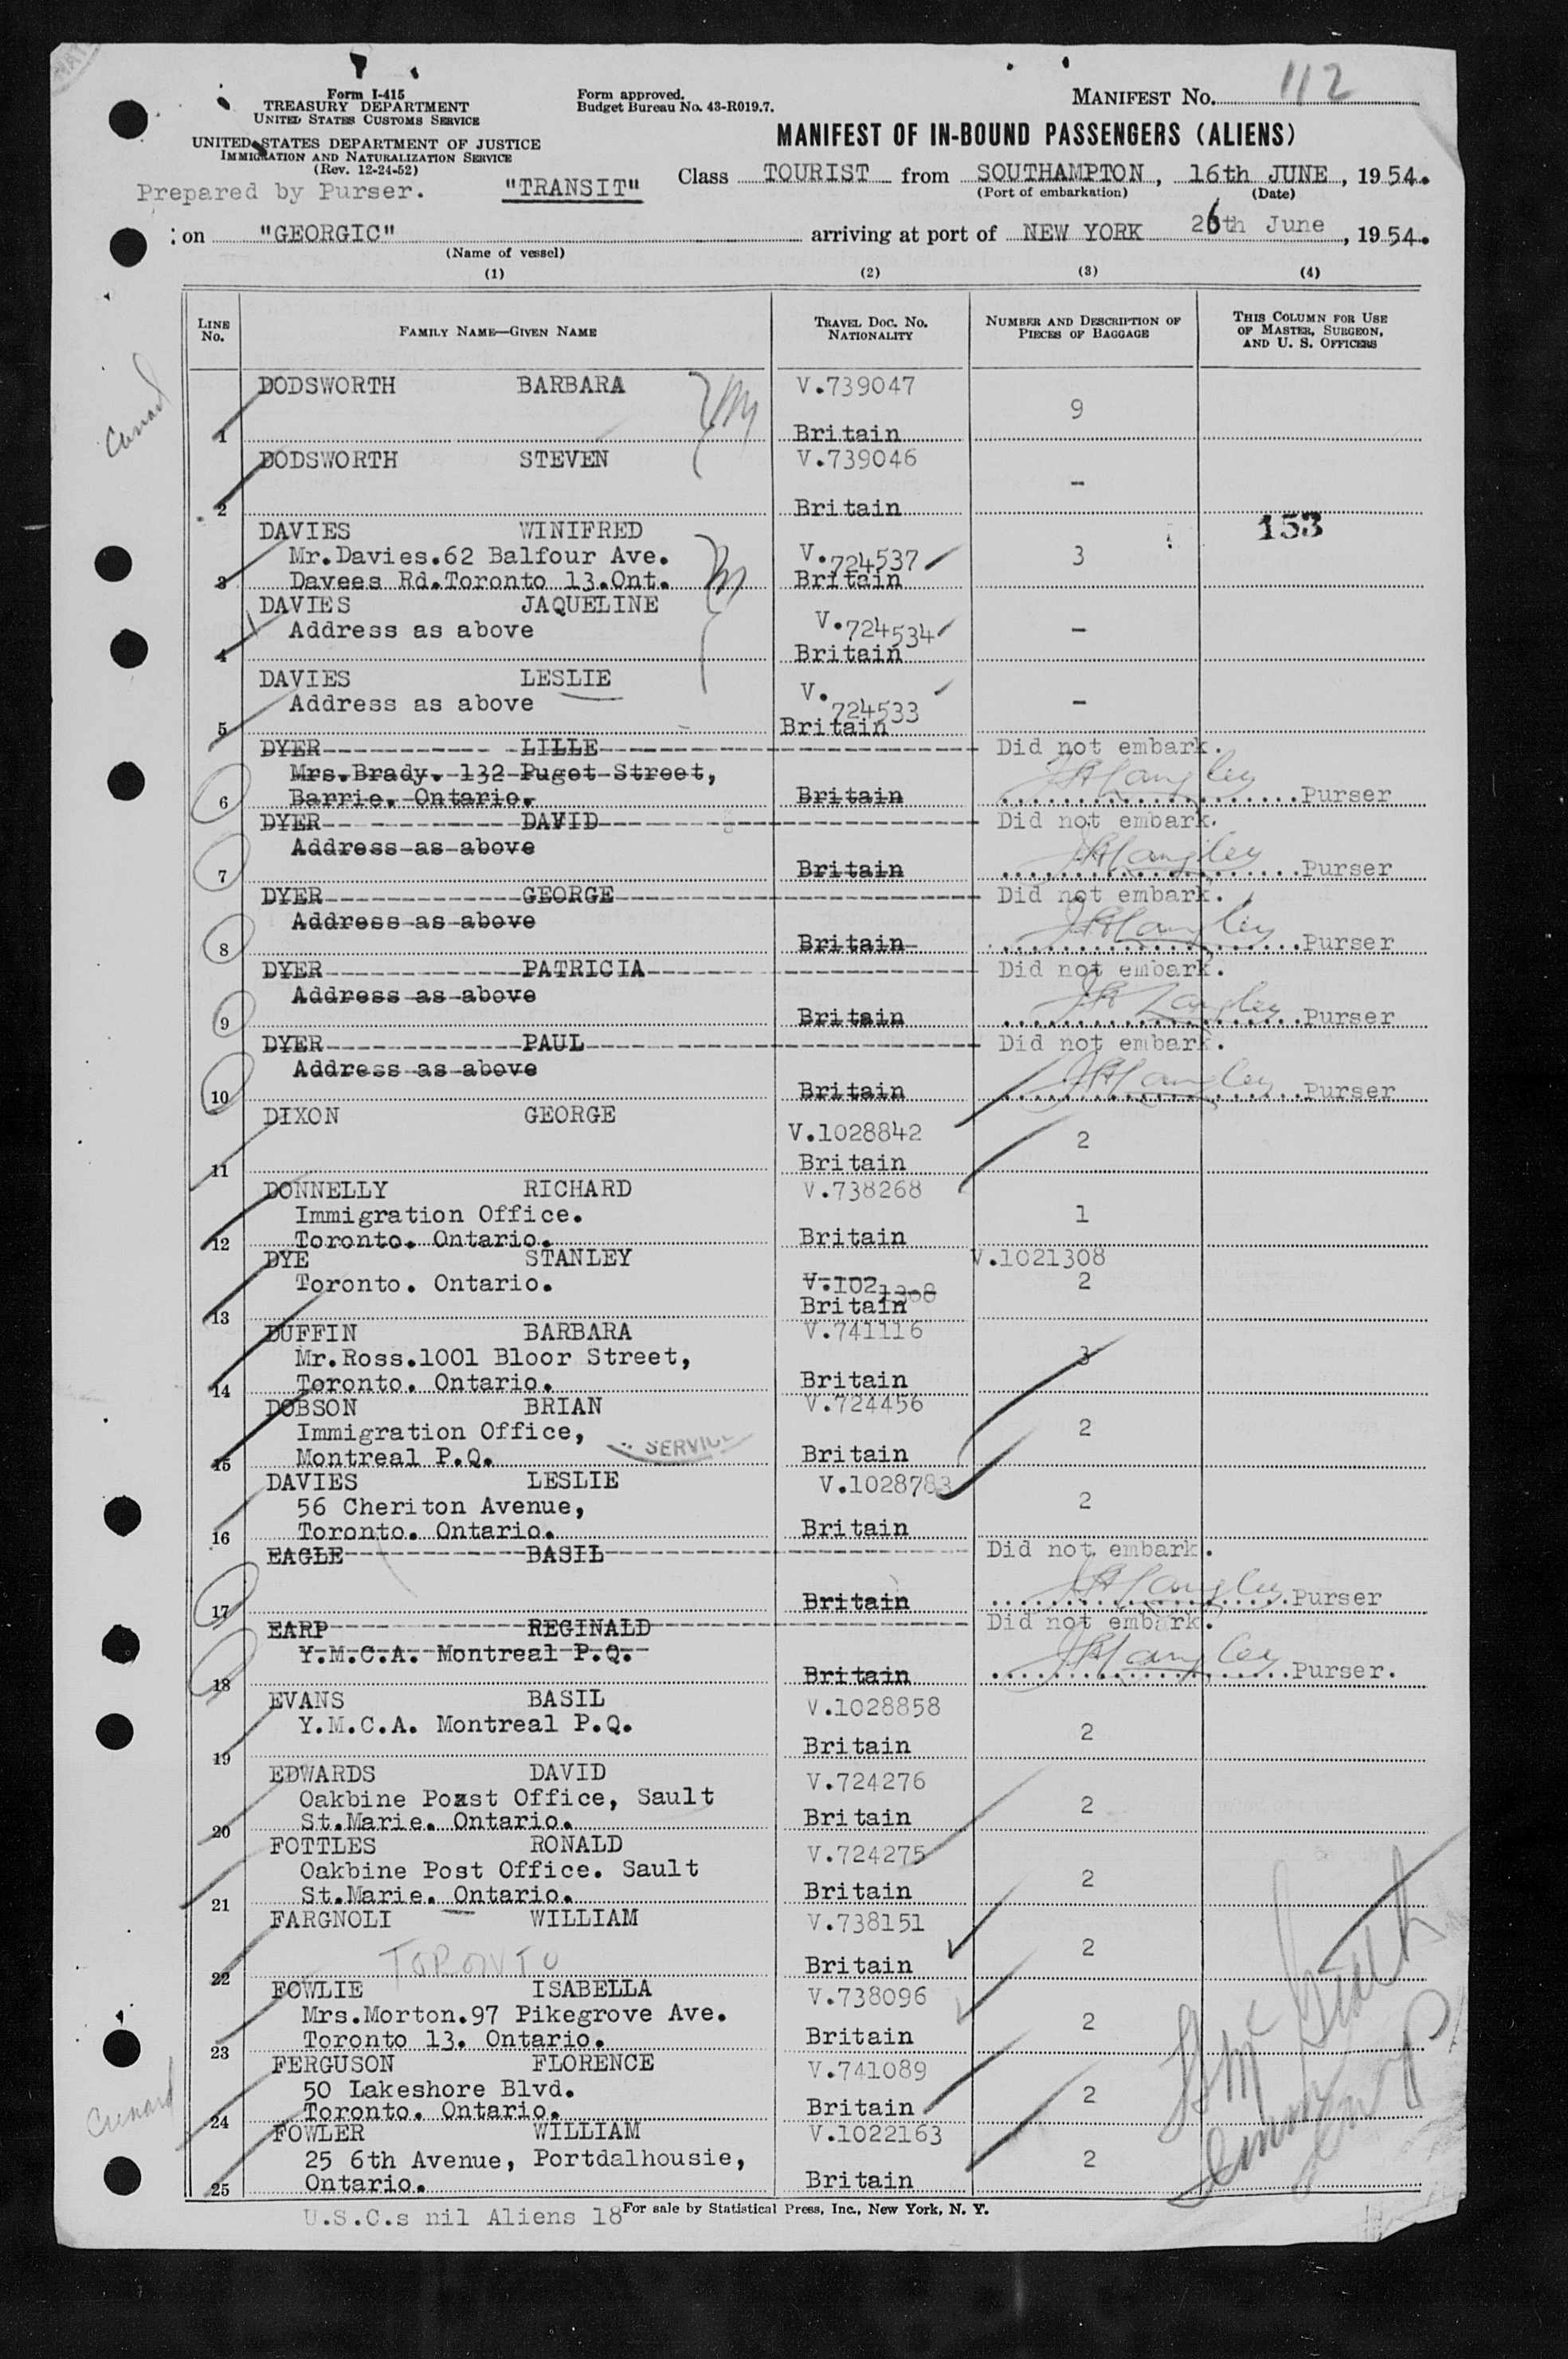 Form I-415
TREASURY DEPARTMENT
UNITED STATES CUSTOMS SERVICE
UNITED STATES DEPARTMENT OF JUSTICE
IMMIGRATION AND NATURALIZATION SERVICE
(Rev. 12-24-52)
Form approved.
Budget Bureau No. 43-R019.7.
MANIFEST NO. 112
MANIFEST OF IN-BOUND PASSENGERS (ALIENS)
Prepared by Purser. "TRANSIT" Class TOURIST from SOUTHAMPTON, 16th JUNE, 1954.
(Port of embarkation) (Date)
on "GEORGIC" arriving at port of NEW YORK 26th June, 1954.
(Name of vessel)
(1) (2) (3) (4)
LINE No. FAMILY NAME—GIVEN NAME TRAVEL DOC. NO. NATIONALITY NUMBER AND DESCRIPTION OF PIECES OF BAGGAGE THIS COLUMN FOR USE OF MASTER, SURGEON, AND U. S. OFFICERS
Cunard
DODSWORTH BARBARA V.739047
9
1 Britain
DODSWORTH STEVEN V.739046
-
2 Britain
DAVIES WINIFRED 153
Mr.Davies.62 Balfour Ave. V.724537 3
3 Davees Rd.Toronto 13.Ont. Britain
DAVIES JAQUELINE
Address as above V.724534 -
4 Britain
DAVIES LESLIE V.
Address as above 724533 -
5 Britain
DYER LILLE Did not embark.
Mrs.Brady. 132 Puget Street,
6 Barrie. Ontario. Britain Purser
DYER DAVID Did not embark.
Address as above
7 Britain Purser
DYER GEORGE Did not embark.
Address as above
8 Britain Purser
DYER PATRICIA Did not embark.
Address as above
9 Britain Purser
DYER PAUL Did not embark.
Address as above
10 Britain Purser
DIXON GEORGE
V.1028842 2
11 Britain
DONNELLY RICHARD V.738268
Immigration Office. 1
12 Toronto. Ontario. Britain
DYE STANLEY V.1021308
Toronto. Ontario. V.1021308 2
13 Britain
DUFFIN BARBARA V.741116
Mr.Ross.1001 Bloor Street, 3
14 Toronto. Ontario. Britain
DOBSON BRIAN V.724456
Immigration Office, 2
SERVICE
15 Montreal P.Q. Britain
DAVIES LESLIE V.1028783
56 Cheriton Avenue, 2
16 Toronto. Ontario. Britain
EAGLE BASIL Did not embark.
17 Britain Purser
EARP REGINALD Did not embark.
Y.M.C.A. Montreal P.Q.
18 Britain Purser.
EVANS BASIL V.1028858
Y.M.C.A. Montreal P.Q. 2
19 Britain
EDWARDS DAVID V.724276
Oakbine Poxst Office, Sault 2
20 St.Marie. Ontario. Britain
FOTTLES RONALD V.724275
Oakbine Post Office. Sault 2
21 St.Marie. Ontario. Britain
FARGNOLI WILLIAM V.738151
TORONTO 2
22 Britain
FOWLIE ISABELLA V.738096
Mrs.Morton.97 Pikegrove Ave. 2
23 Toronto 13. Ontario. Britain
FERGUSON FLORENCE V.741089
50 Lakeshore Blvd. 2
Cunard
24 Toronto. Ontario. Britain
FOWLER WILLIAM V.1022163
25 6th Avenue, Portdalhousie, 2
25 Ontario. Britain
U.S.C.s nil Aliens 18 For sale by Statistical Press, Inc., New York, N. Y.